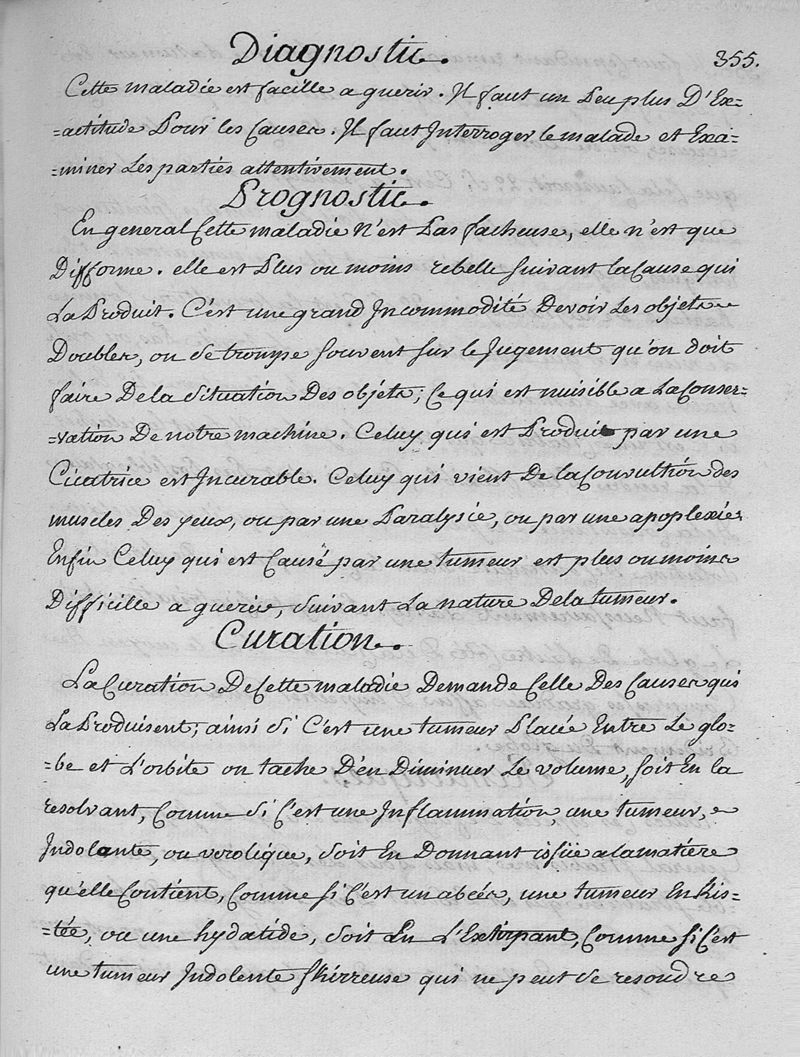 Diagnostic.
355.
Cette maladie est facille a guerir. Il faut un peu plus D'Ex=
=actitude Pour les Causes. Il faut Interroger le malade et Exa=
=miner Les parties attentivement.
Prognostic.
En general Cette maladie N'est Pas facheuse, elle n'est que
Difforme. elle est Plus ou moins rebelle suivant la Cause qui
La Produit. C'est une grand Incommodité De voir Les objets
Doubles, on se trompe souvent sur le Jugement qu'on doit
faire De la Situation Des objets; Ce qui est nuisible a La Conser=
=vation De notre machine. Celuy qui est Produit par une
Cicatrice est Incurable. Celuy qui vient De la Convultion des
muscles Des yeux, ou par une Paralysie, ou par une apoplexie
Enfin Celuy qui est Causé par une tumeur est plus ou moins
Difficille a guerir, Suivant La nature De la tumeur.
Curation.
La Curation De Cette maladie Demande Celle Des Causes qui
La Produisent; ainsi Si C'est une tumeur Placée Entre Le glo=
=be et L'orbite on tache D'En Diminuer Le volume, soit En la
resolvant, Comme Si C'est une Inflammation, une tumeur,
Indolante, ou verolique, soit En Donnant issüe a la matiére
qu'elle Contient, Comme si C'est un abcés, une tumeur Enkis=
=tée, ou une hydatide, soit En L'Extirpant, Comme si C'est
une tumeur Indolente skirreuse qui ne peut Se resoudre